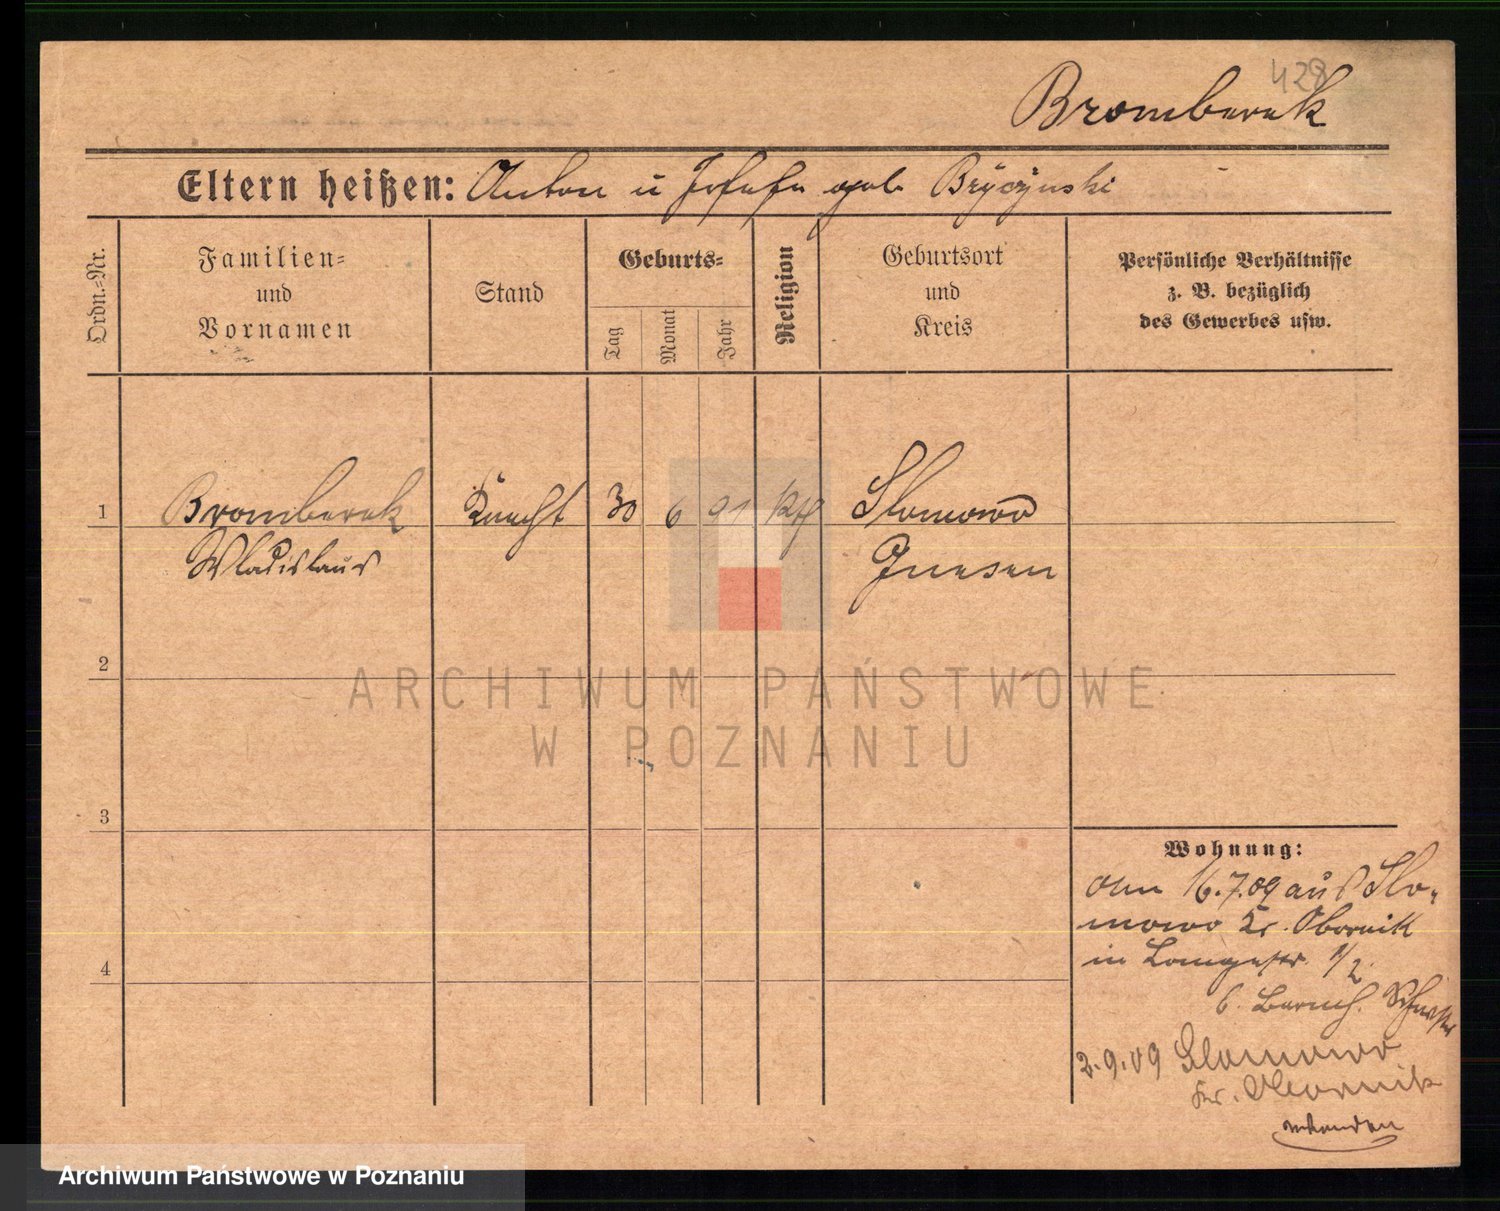 428
Bromberek
Eltern heißen: Anton u Josefa geb. Bryczynski
Ordn.-Nr.
Familien-
und
Vornamen
Stand
Geburts-
Tag
Monat
Jahr
Religion
Geburtsort
und
Kreis
Persönliche Verhältnisse
z. B. bezüglich
des Gewerbes usw.
1 Bromberek Knecht 30 6 91 kth Slomowo
Wladislaus Gnesen
2
3
4
Wohnung:
Am 16.7.09 aus Slo-
mowo Kr. Obornik
in Langestr. 1/2.
b. Schwester
2.9.09 Slomowo
Kr. Obornik
ARCHIWUM PAŃSTWOWE
W POZNANIU
Archiwum Państwowe w Poznaniu